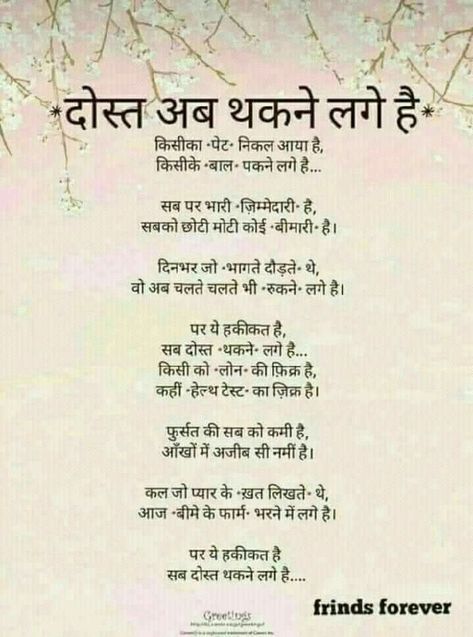 *दोस्त अब थकने लगे है*
किसीका *पेट* निकल आया है,
किसीके *बाल* पकने लगे है...
सब पर भारी *ज़िम्मेदारी* है,
सबको छोटी मोटी कोई *बीमारी* है।
दिनभर जो *भागते दौड़ते* थे,
वो अब चलते चलते भी *रुकने* लगे है।
पर ये हकीकत है,
सब दोस्त *थकने* लगे है...
किसी को *लोन* की फ़िक्र है,
कहीं *हेल्थ टेस्ट* का ज़िक्र है।
फुर्सत की सब को कमी है,
आँखों में अजीब सी नमीं है।
कल जो प्यार के *ख़त लिखते* थे,
आज *बीमे के फार्म* भरने में लगे है।
पर ये हकीकत है
सब दोस्त थकने लगे है....
Greetings
frinds forever